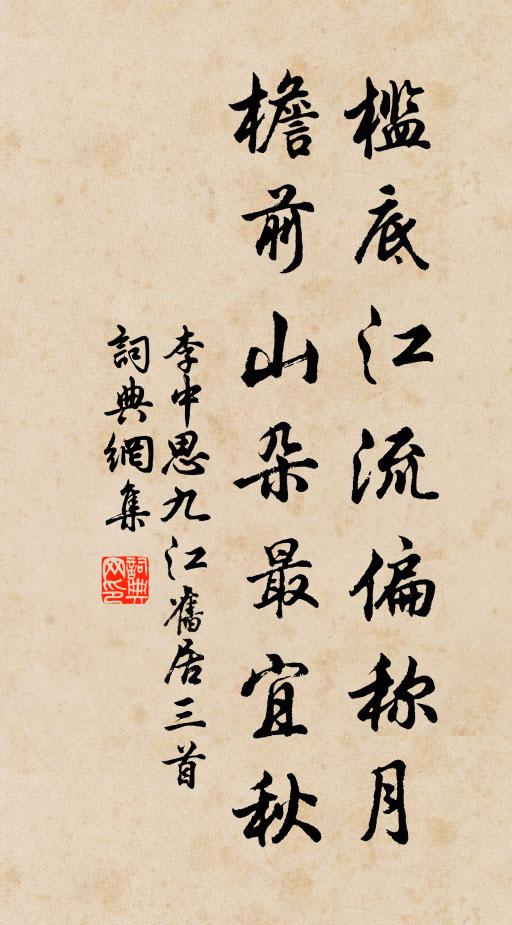 檻底江流偏称月
檐前山朵最宜秋
李中思九江舊居三首
詞典網集
詞典
网印